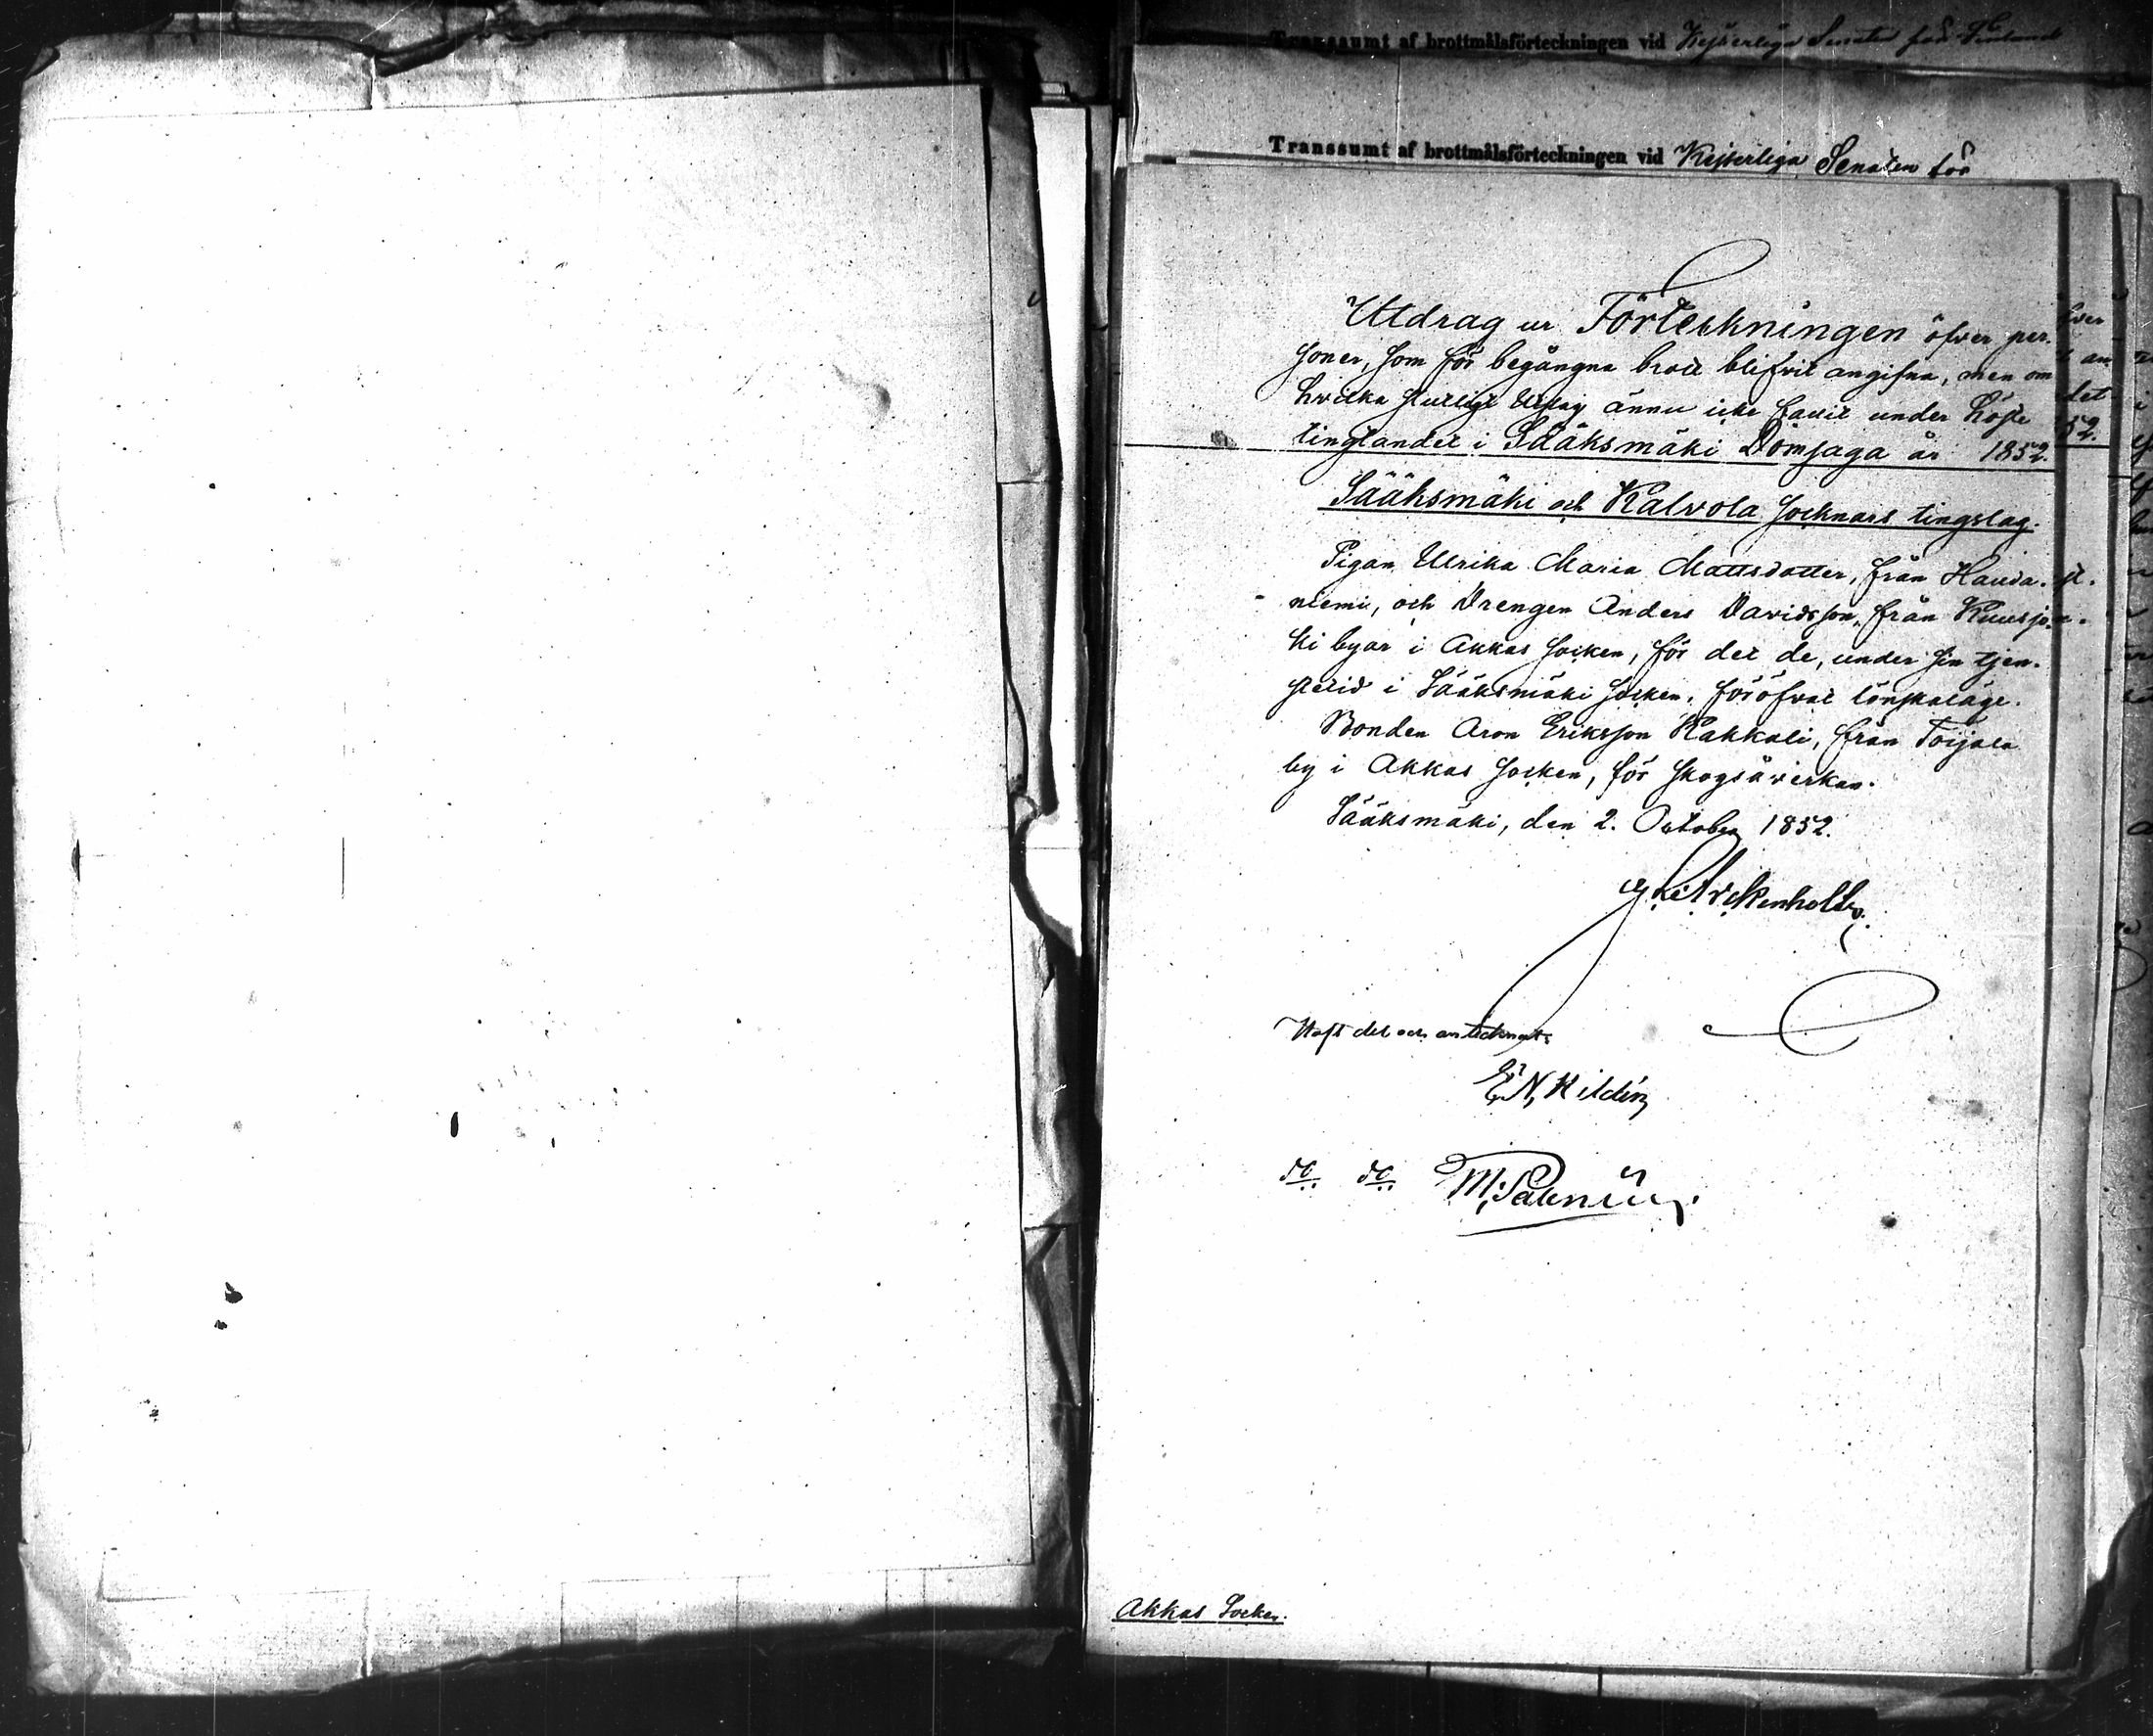 Transsumt af brottmålsförteckningen vid Kejserliga Senaten för Finland
Transsumt af brottmålsförteckningen vid Kejserliga Senaten för
Utdrag ur Förteckningen öfver per-
soner, som för begångna brott blifvit angifna, men om
hvilka slutligt utslag ännu icke fallit under Höste
tingtandet i Sääksmäki Domsaga år 1852.
Sääksmäki och Kalvola socknars tingslag.
Pigan Ulrika Maria Mattsdotter, från Hauda-
niemi, och Drengen Anders Davidsson, från Kuusjo-
ki byar i Akkas socken, för det de, under sin tjen-
stetid i Sääksmäki socken, föröfvat lönskaläge.
Bonden Aron Eriksson Kakkali, från Toijala
by i Akkas socken, för skogsåverkan.
Sääksmäki, den 2. October 1852.
Haft del och antecknat:
E. N. Hildén
do do M. Palenius.
Akkas Socken.
fver
an
det
52.